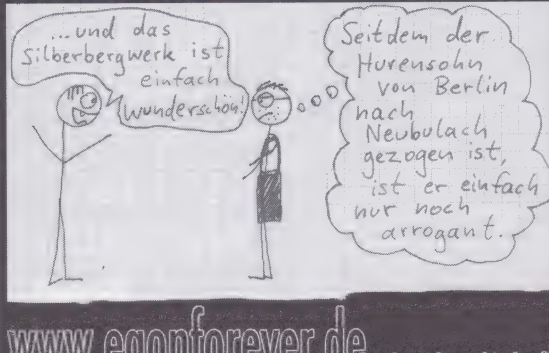 ...und das
Silberbergwerk ist
einfach
wunderschön!
Seitdem der
Hurensohn
von Berlin
nach
Neubulach
gezogen ist,
ist er einfach
nur noch
arrogant.
www.egonforever.de